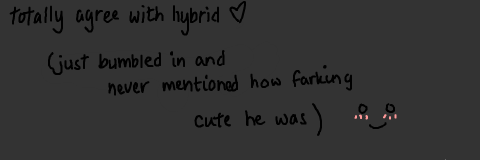 totally agree with hybrid ♡
(just bumbled in and
never mentioned how farking
cute he was)